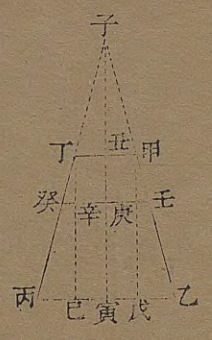 子
丁 丑 甲
癸 辛 庚 壬
丙 巳 寅 戊 乙